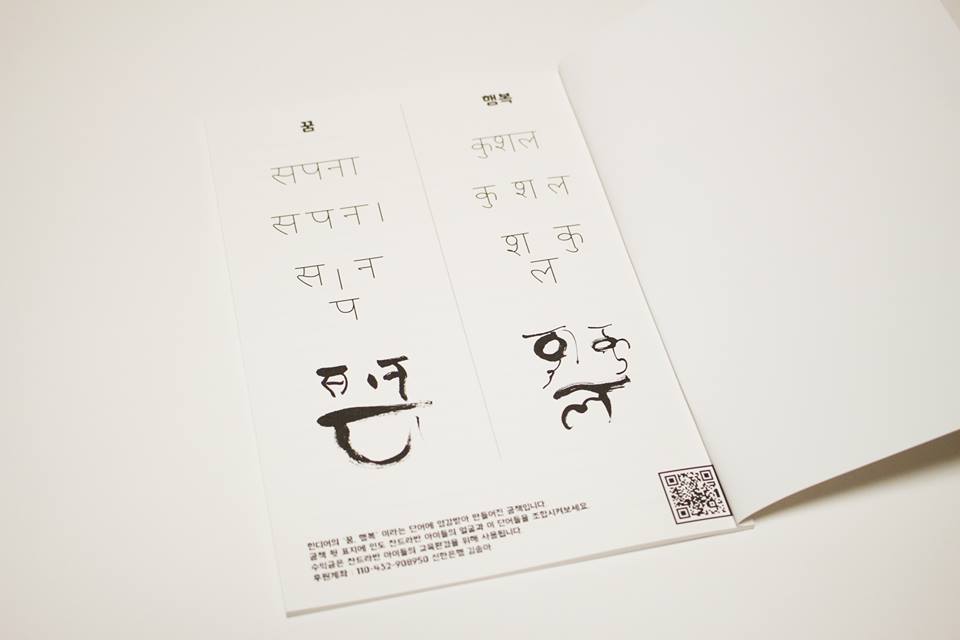 꿈
सपना
स प न ।
स । न
प
स · न
प
행복
कुशल
कु श ल
श कु
ल
श कु
ल
힌디어의 '꿈, 행복' 이라는 단어에 영감받아 만들어진 공책입니다.
공책 뒷 표지에 인도 찬드라반 아이들의 얼굴과 이 단어들을 조합시켜보세요.
수익금은 찬드라반 아이들의 교육환경을 위해 사용됩니다.
후원계좌 : 110-432-908950 신한은행 김송아